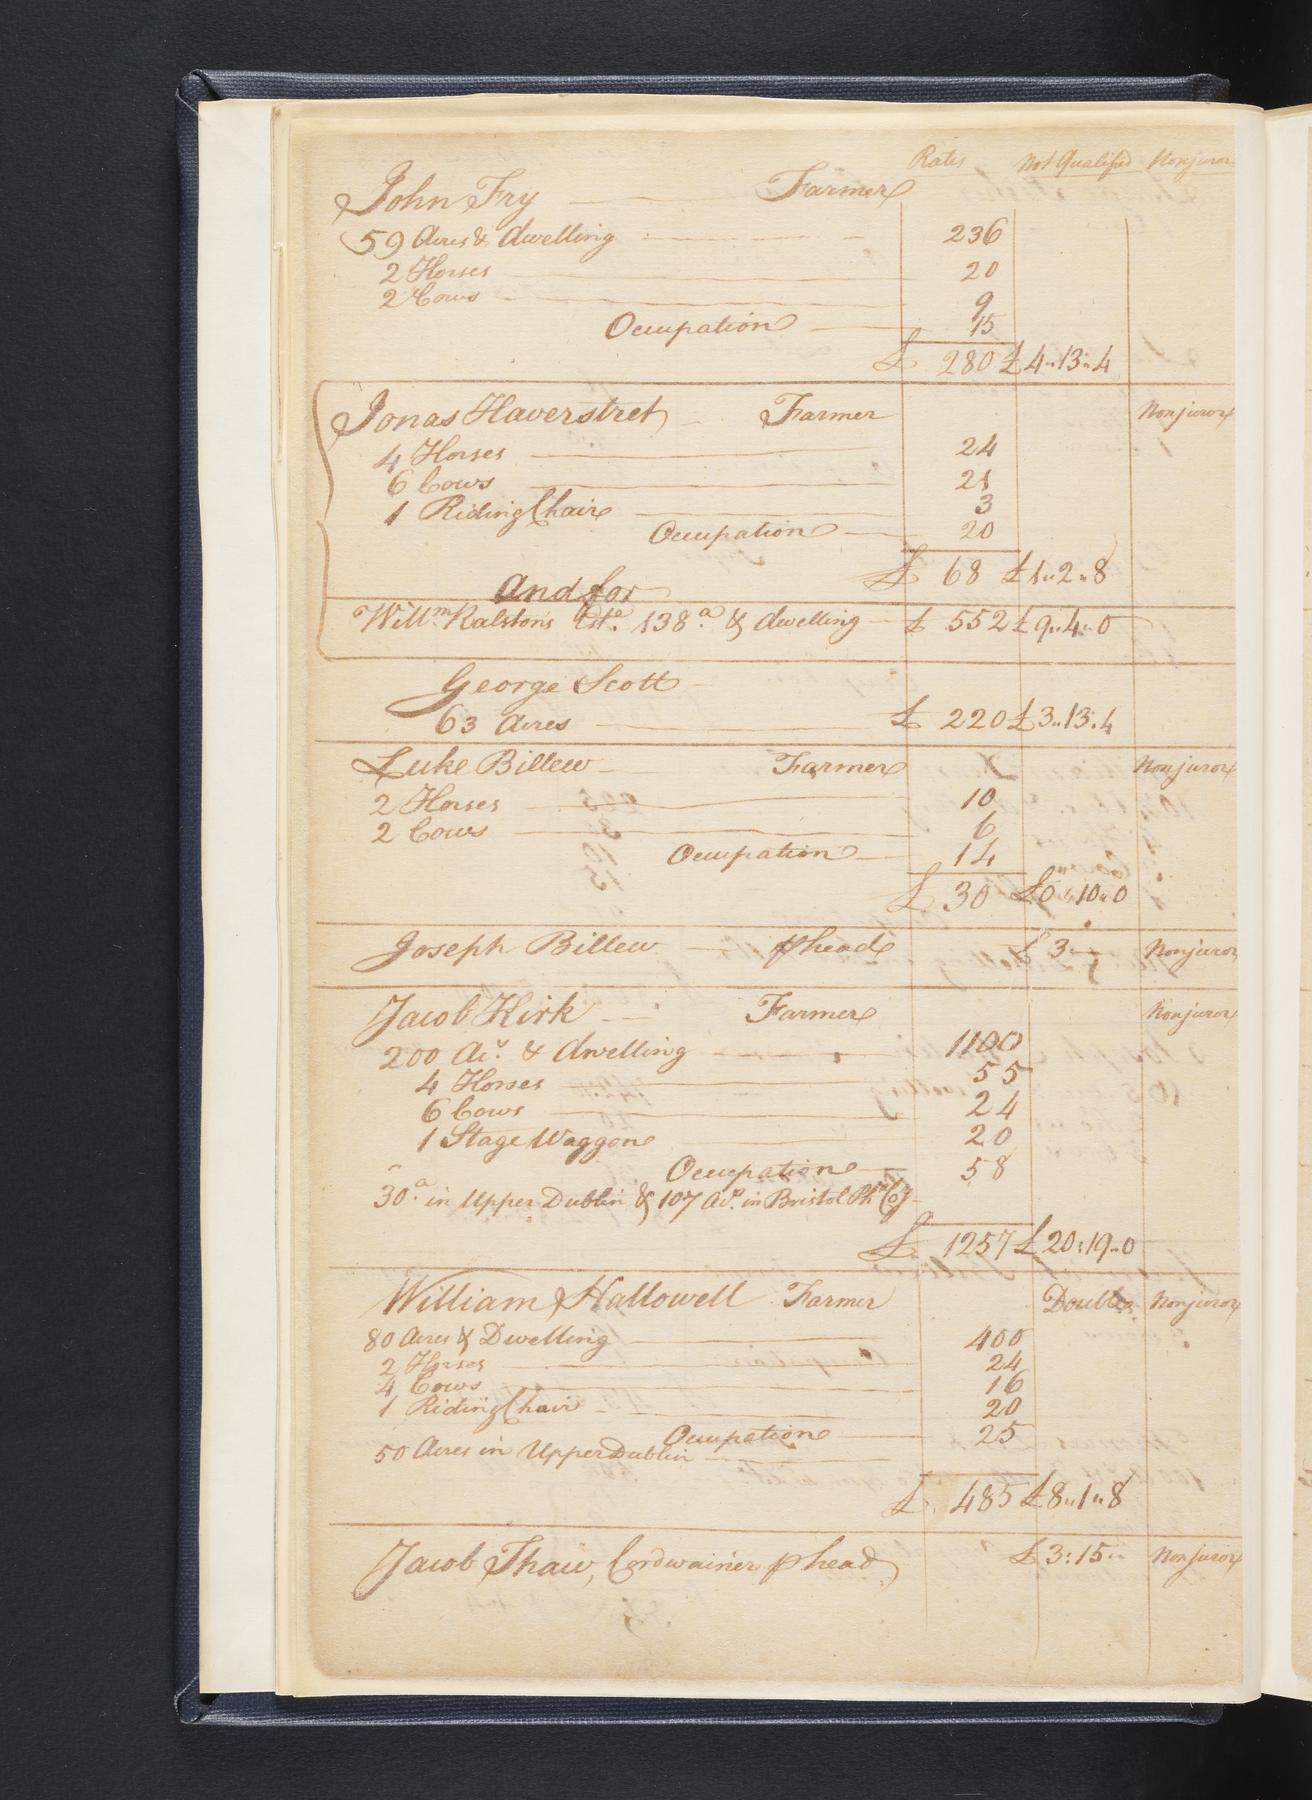 Rates Not Qualified Nonjuror
John Fry Farmer
59 Acres & dwelling 236
2 Horses 20
2 Cows 9
Occupation 15
£ 280 £4"13"4
Jonas Haverstret Farmer Nonjuror
4 Horses 24
6 Cows 21
1 Riding Chair 3
Occupation 20
£ 68 £1"2"8
and for
Willm Ralston's Este. 138a & dwelling £ 552 £9"4"0
George Scott
63 Acres £ 220 £3"13"4
Luke Billew Farmer Nonjuror
2 Horses 10
2 Cows 6
Occupation 14
£ 30 £0"10"0
Joseph Billew phead £ 3" Nonjuror
Jacob Kirk Farmer Nonjuror
200 Acs. & dwelling 1100
4 Horses 55
6 Cows 24
1 Stage Waggon 20
Occupation 58
30a in Upper Dublin & 107 Acs. in Bristol Pha Coy
£ 1257 £20:19"0
William Hallowell Farmer Double Nonjuror
80 Acres & Dwelling 400
2 Horses 24
4 Cows 16
1 Riding Chair 20
Occupation 25
50 Acres in Upper Dublin
£ 485 £8"1"8
Jacob Thaw, Cordwainer phead £3:15" Nonjuror